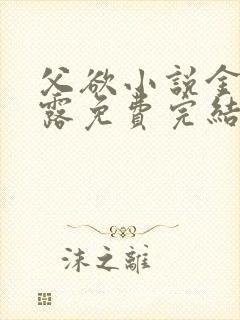 父欲小说金
露免費完結
沫之離